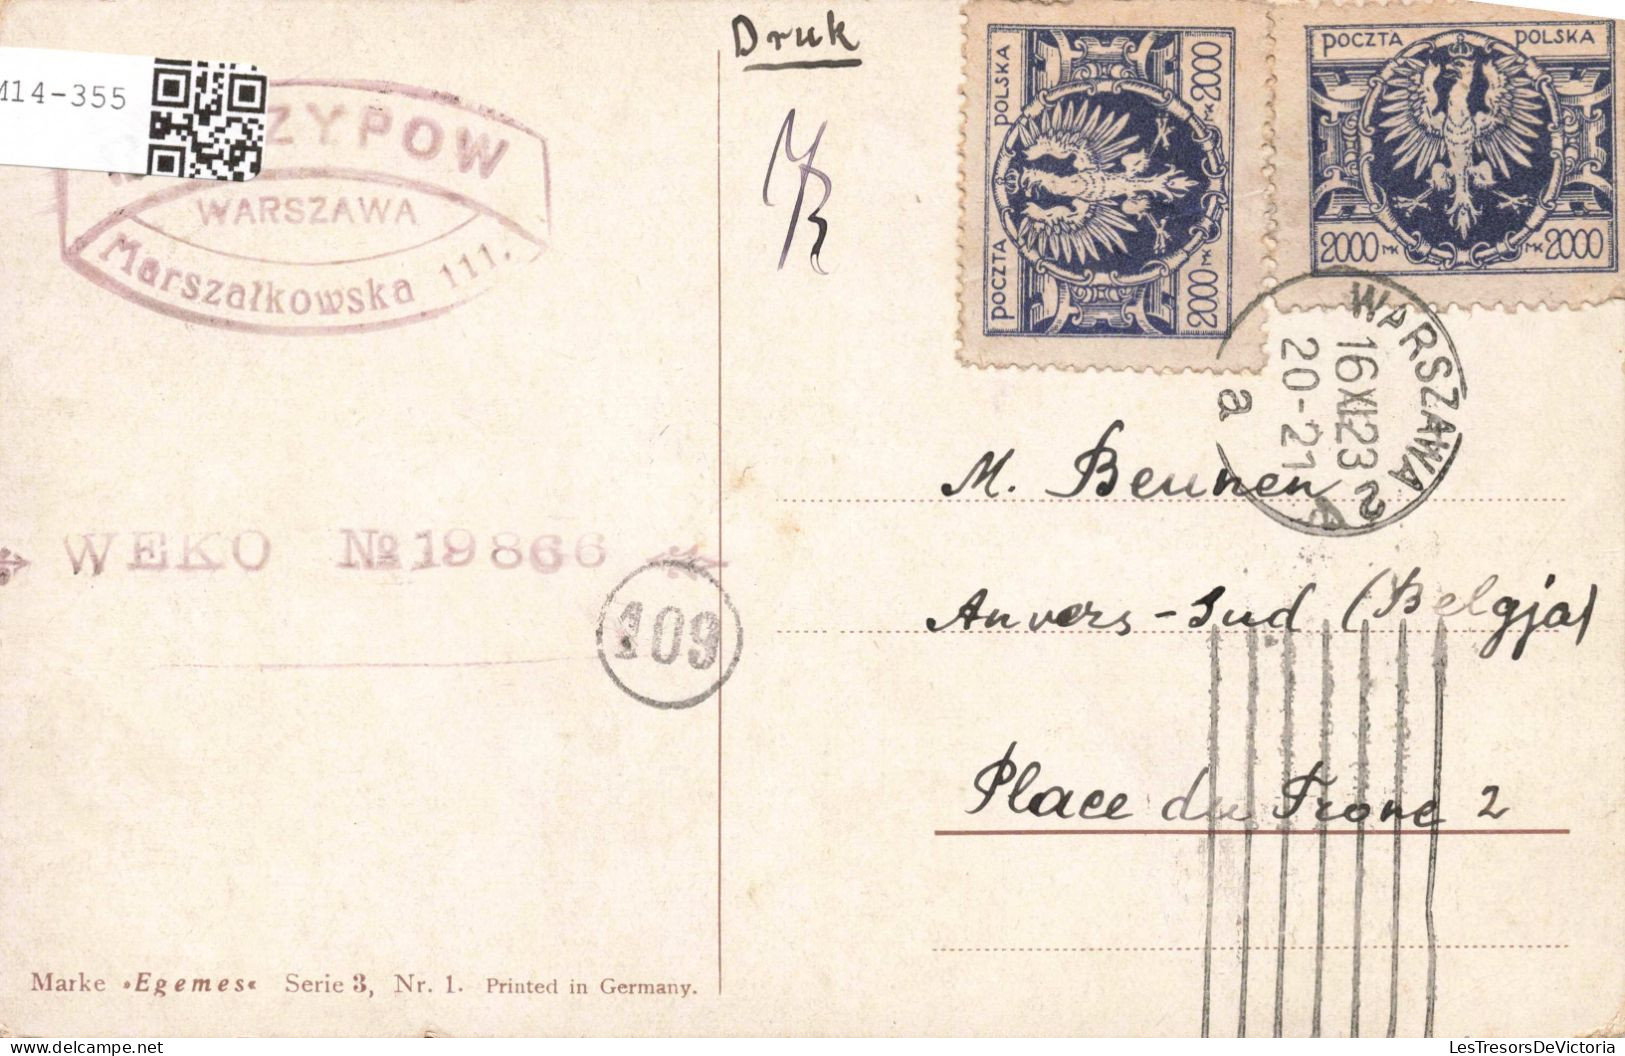 Druk
M14-355
ZYPOW
WARSZAWA
Marszałkowska 111.
POCZTA POLSKA
2000 MK MK 2000
POCZTA POLSKA
2000 MK MK 2000
WARSZAWA 2
16 XI 23
20-21
a
M. Beunen
WEKO No 19866
109
Anvers-Sud (Belgja)
Place du Trone 2
Marke »Egemes« Serie 3, Nr. 1. Printed in Germany.
LesTresorsDeVictoria